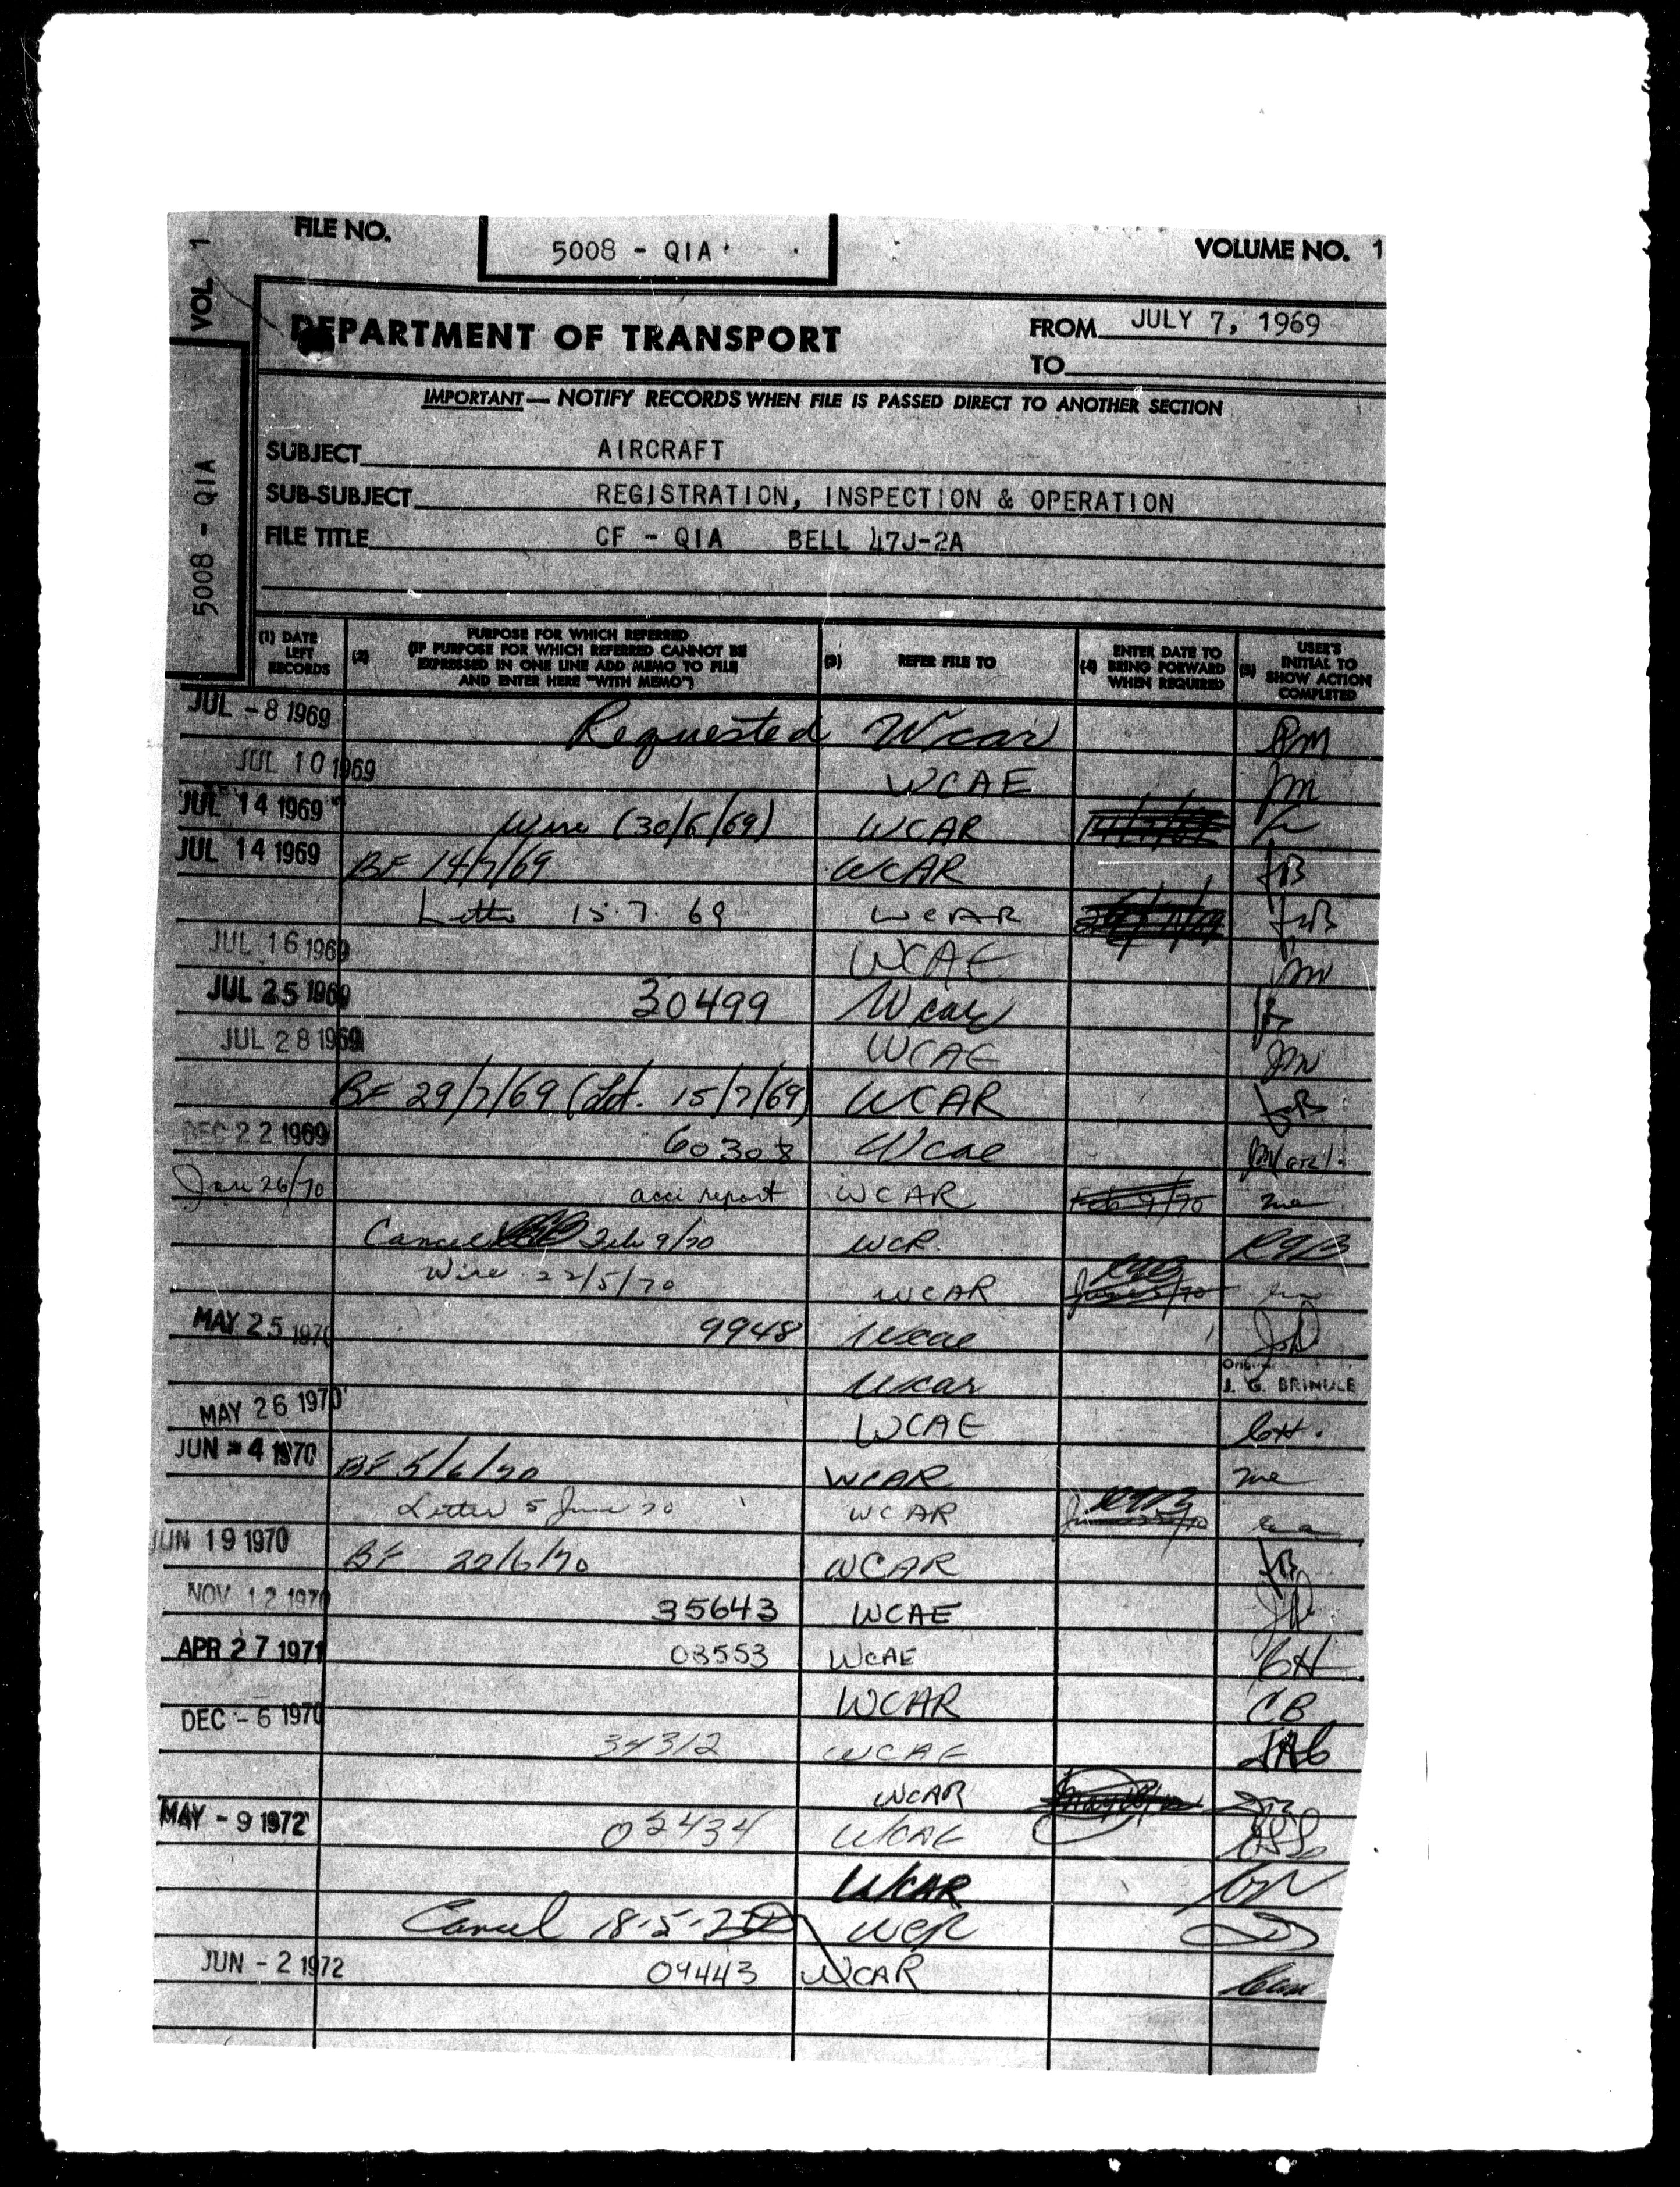 FILE NO. 5008 - QIA VOLUME NO. 1
VOL 1
5008 - QIA
DEPARTMENT OF TRANSPORT FROM JULY 7, 1969
TO
IMPORTANT — NOTIFY RECORDS WHEN FILE IS PASSED DIRECT TO ANOTHER SECTION
SUBJECT AIRCRAFT
SUB-SUBJECT REGISTRATION, INSPECTION & OPERATION
FILE TITLE CF - QIA BELL 47J-2A
(1) DATE LEFT RECORDS
(2) PURPOSE FOR WHICH REFERRED
(IF PURPOSE FOR WHICH REFERRED CANNOT BE
EXPRESSED IN ONE LINE ADD MEMO TO FILE
AND ENTER HERE "WITH MEMO")
(3) REFER FILE TO
(4) ENTER DATE TO BRING FORWARD WHEN REQUIRED
(5) USER'S INITIAL TO SHOW ACTION COMPLETED
JUL - 8 1969 Requested Wcar
JUL 10 1969 WCAE
JUL 14 1969 Wire (30/6/69) WCAR
JUL 14 1969 BF 14/7/69 WCAR
Letter 15.7.69 WCAR
JUL 16 1969 WCAE
JUL 25 1969 30499 Wcar
JUL 28 1969 WCAE
BF 29/7/69 (Let. 15/7/69) WCAR
DEC 22 1969 60308 Wcae
Jan 26/70 acci report WCAR Feb 9/70 me
Cancel Feb 9/70 WCR RGB
Wire 22/5/70 WCAR June 5/70
MAY 25 1970 9948 Wcae
Wcar J. G. BRINDLE
MAY 26 1970 WCAE GH.
JUN - 4 1970 BF 5/6/70 WCAR me
Letter 5 June 70 WCAR
JUN 19 1970 BF 22/6/70 WCAR
NOV 12 1970 35643 WCAE
APR 27 1971 03553 WCAE GH
WCAR CB
DEC - 6 1970 34312 WCAE
WCAR
MAY - 9 1972 02434 WCAE
WCAR
Cancel 18-5-72 WCR
JUN - 2 1972 09443 WCAR